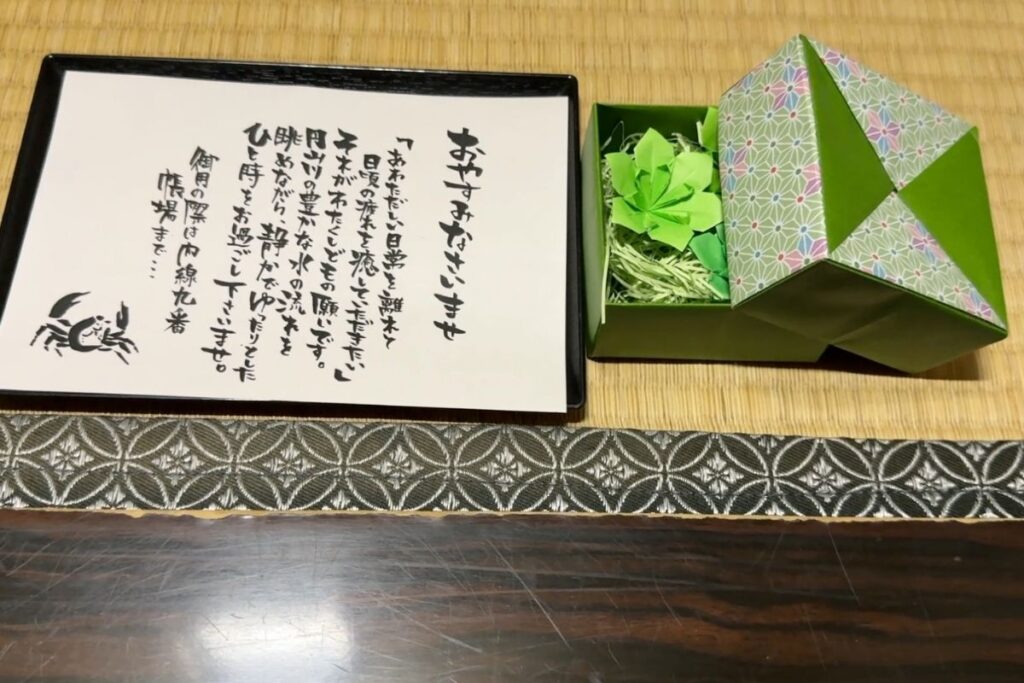 おやすみなさいませ
「あわただしい日常を離れて
日頃の疲れを癒していただきたい」
それがわたくしどもの願いです。
円山川の豊かな水の流れを
眺めながら、静かでゆったりとした
ひと時をお過ごし下さいませ。
御用の際は内線九番
帳場まで…